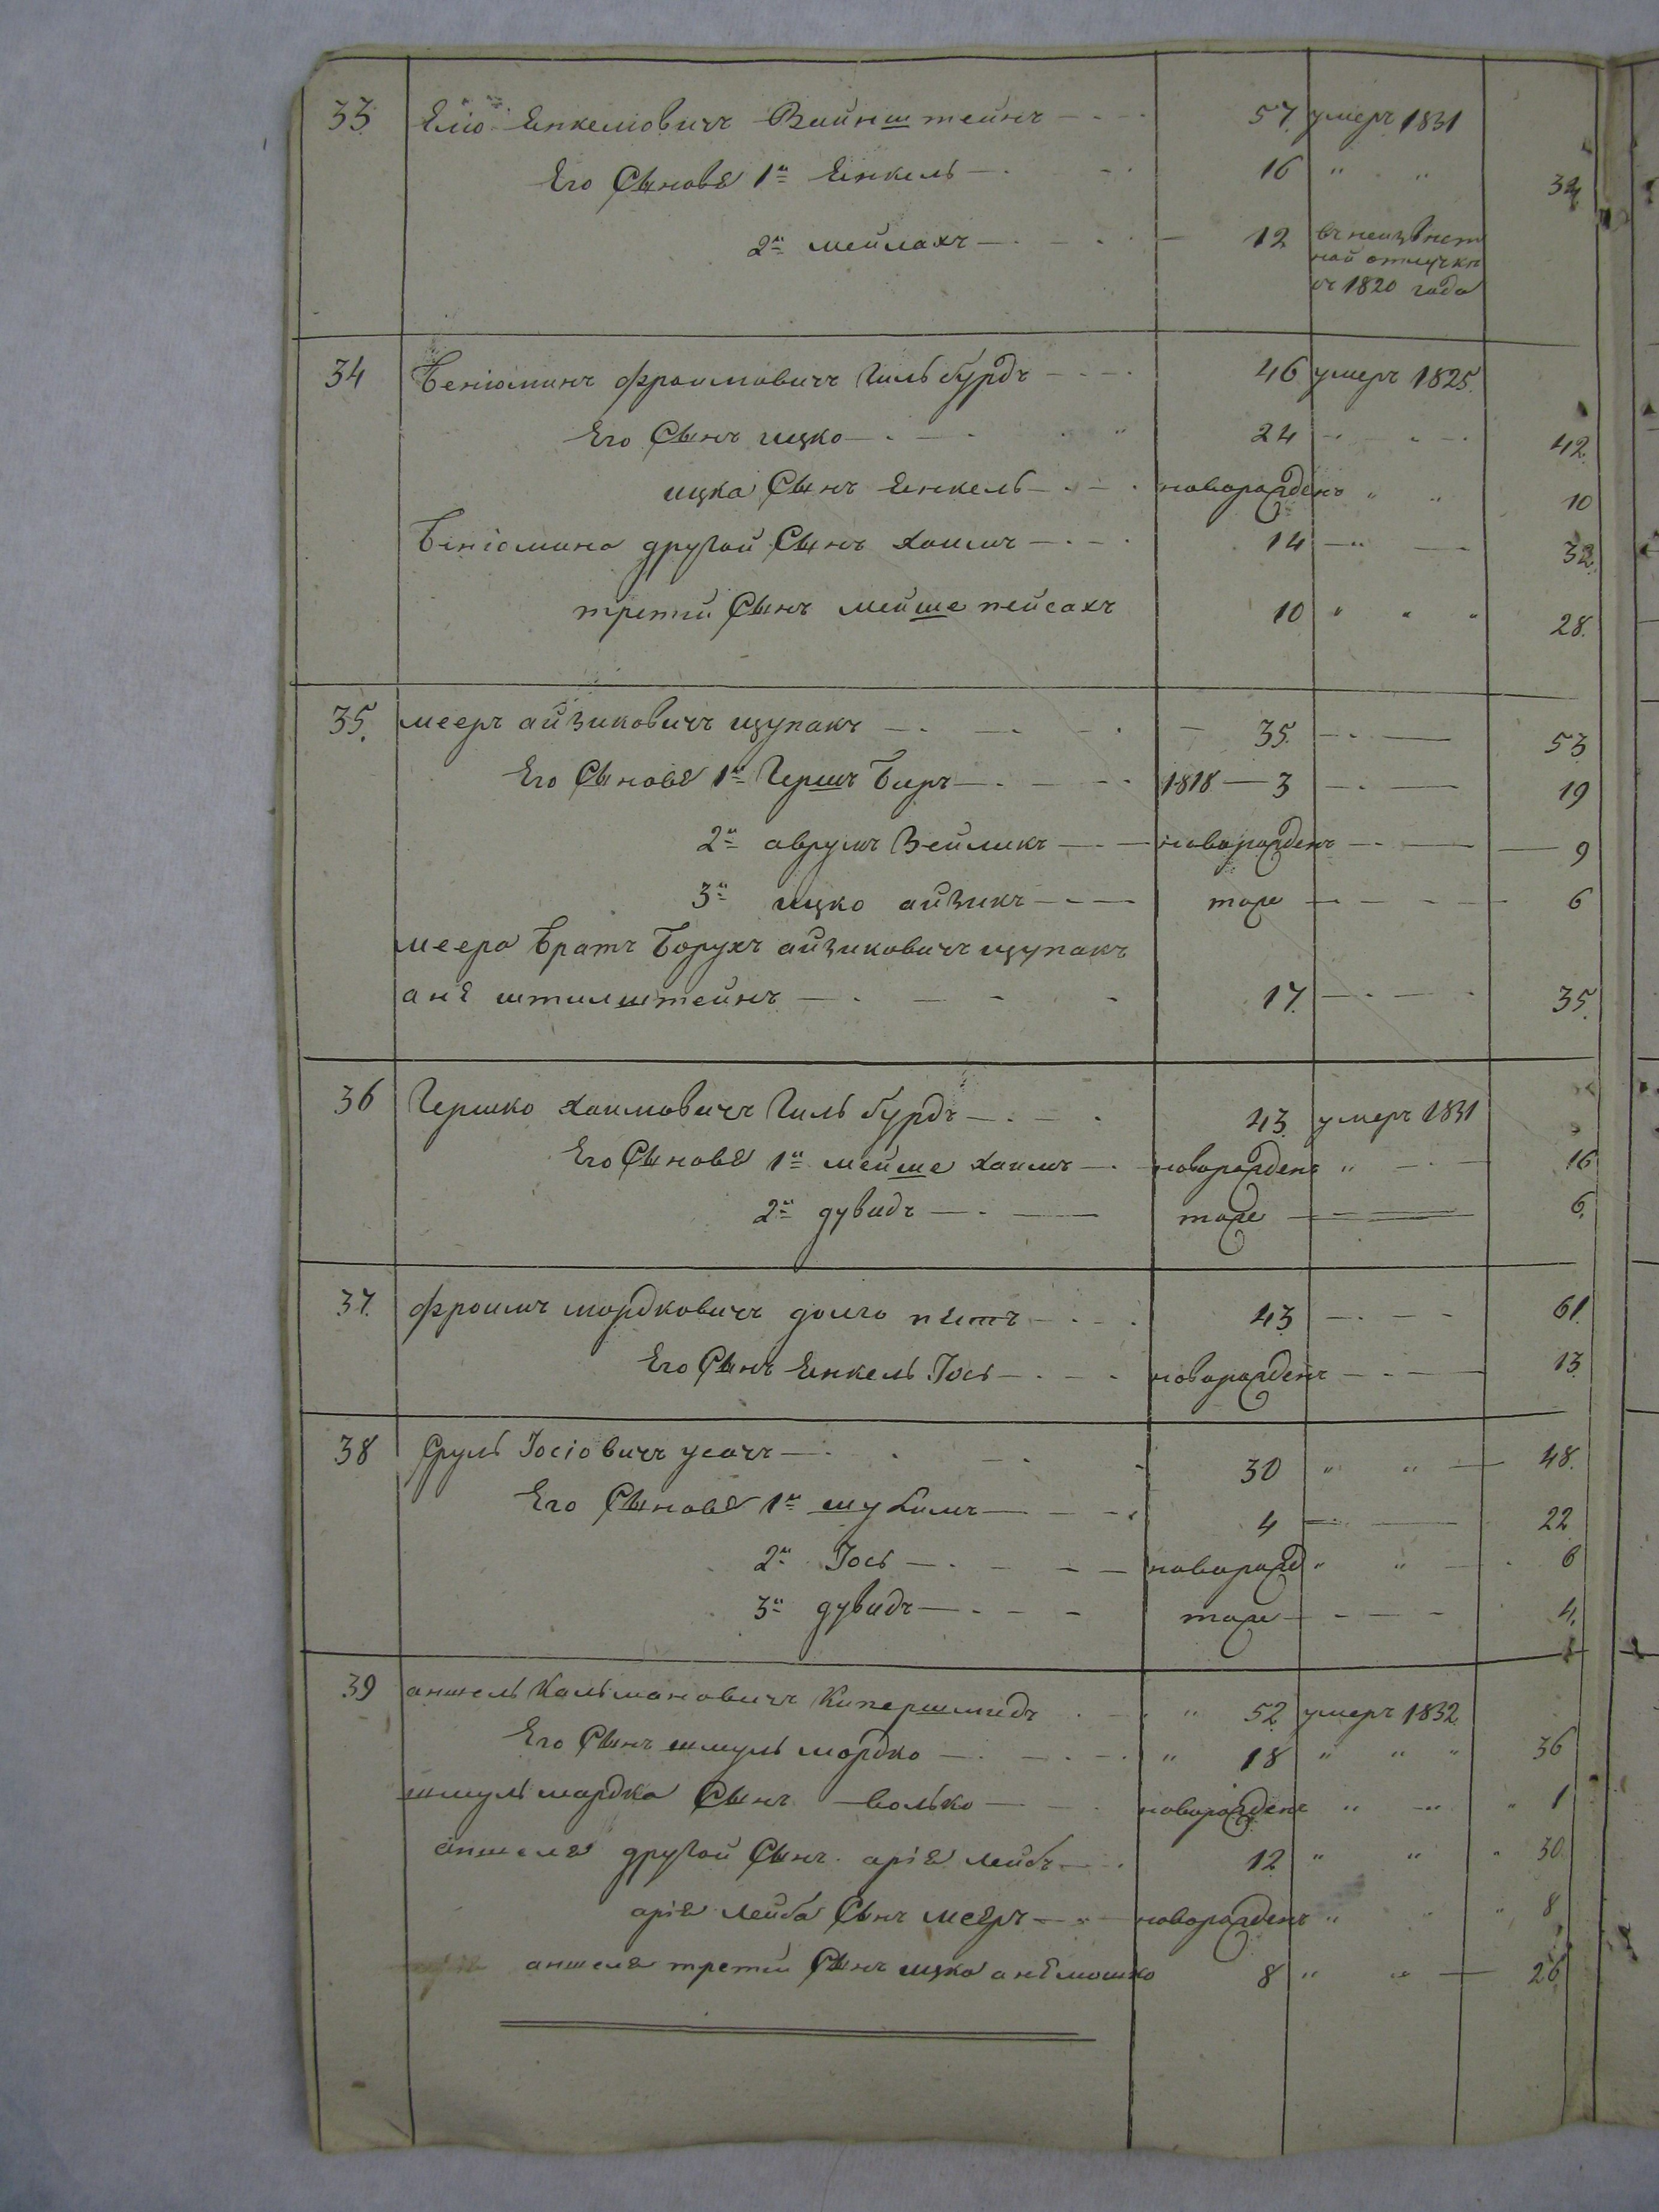 33. Еліо Енкеліовичъ Вайнштейнъ 57. умеръ 1831
Его Сыновѣ 1й Енкель 16 " " 34
2й мейлахъ 12 въ неизвѣст
ной отлучкѣ
съ 1820 года
34 Беніоминъ фроимовичъ Гильбурдъ 46 умеръ 1825.
Его Сынъ ицко 24 42.
ицка Сынъ Енкель новорожденъ " " 10
Беніомина другой Сынъ хаимъ 14 32.
третій Сынъ мейше пейсахъ 10 " " " 28.
35. мееръ айзиковичъ щупакъ 35. 53
Его Сыновѣ 1й Гершъ Беръ 1818 — 3 19
2й аврумъ Зейликъ новорожденъ 9
3й ицко айзикъ тоже 6
меера Братъ Борухъ айзиковичъ щупакъ
анѣ штилштейнъ 17. 35.
36 Гершко хаимовичъ Гильбурдъ 43. умеръ 1831
Его Сыновѣ 1й мейше хаимъ новорожденъ " 16
2й дувидъ тоже 6.
37. фроимъ мордковичъ долгопѣтъ 43 61.
Его Сынъ Енкель Іось новорожденъ 13.
38 Сруль Іосіовичъ усачъ 30 " " 48.
Его Сыновѣ 1й шухимъ 4 22
2й Іось новорожд " " 6
3й дувидъ тоже 4.
39 аншель Кальмановичъ Кипершмидъ " 52 умеръ 1832.
Его Сынъ шмуль мордко " 18 " " " 36
шмуль мордка Сынъ волько новорожденъ " " " 1
аншеля другой Сынъ аріѣ лейбъ 12 " " " 30.
аріѣ лейба Сынъ меѣръ новорожденъ " " " 8
аншеля третій Сынъ ицко анѣ мошко 8 " " 26